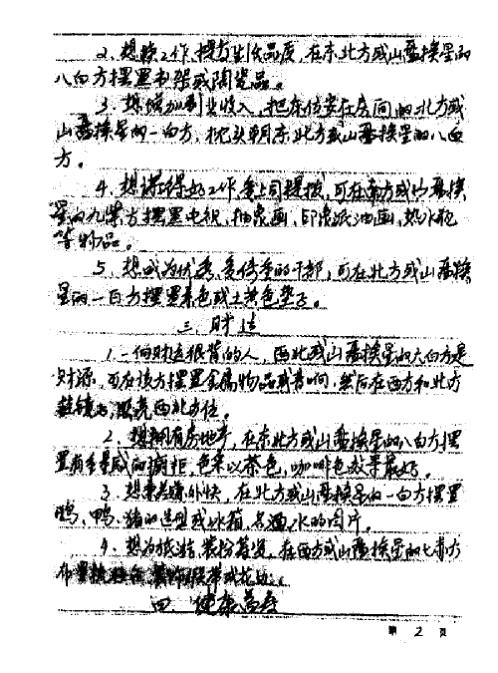 2、想换工作、提高生活品质，在东北方或山叠挨星的
八白方摆置书架或陶瓷品。
3、想增加副业收入，把床位安在房间的北方或
山叠挨星的一白方，枕头朝东北方或山叠挨星的八白
方。
4、想谋得好工作，受上司提拔，可在南方或山叠挨
星的九紫方摆置电视、抽象画、印象派油画、热水瓶
等物品。
5、想成为优秀、受信任的干部，可在北方或山叠挨
星的一白方摆置素色或土黄色垫子。
三、财运
1、一向财运很背的人，西北或山叠挨星的六白方是
财源，可在该方摆置金属物品或音响，然后在西方和北方
挂镜子，照亮西北方位。
2、想拥有房地产，在东北方或山叠挨星的八白方摆
置有重量感的橱柜，色彩以茶色、咖啡色效果最好。
3、想赚外快，在北方或山叠挨星的一白方摆置
鸭、猪的造型或冰箱、水的图片。
4、在西方或山叠挨星的七赤方
布置或花边。
四、健康
第 2 页